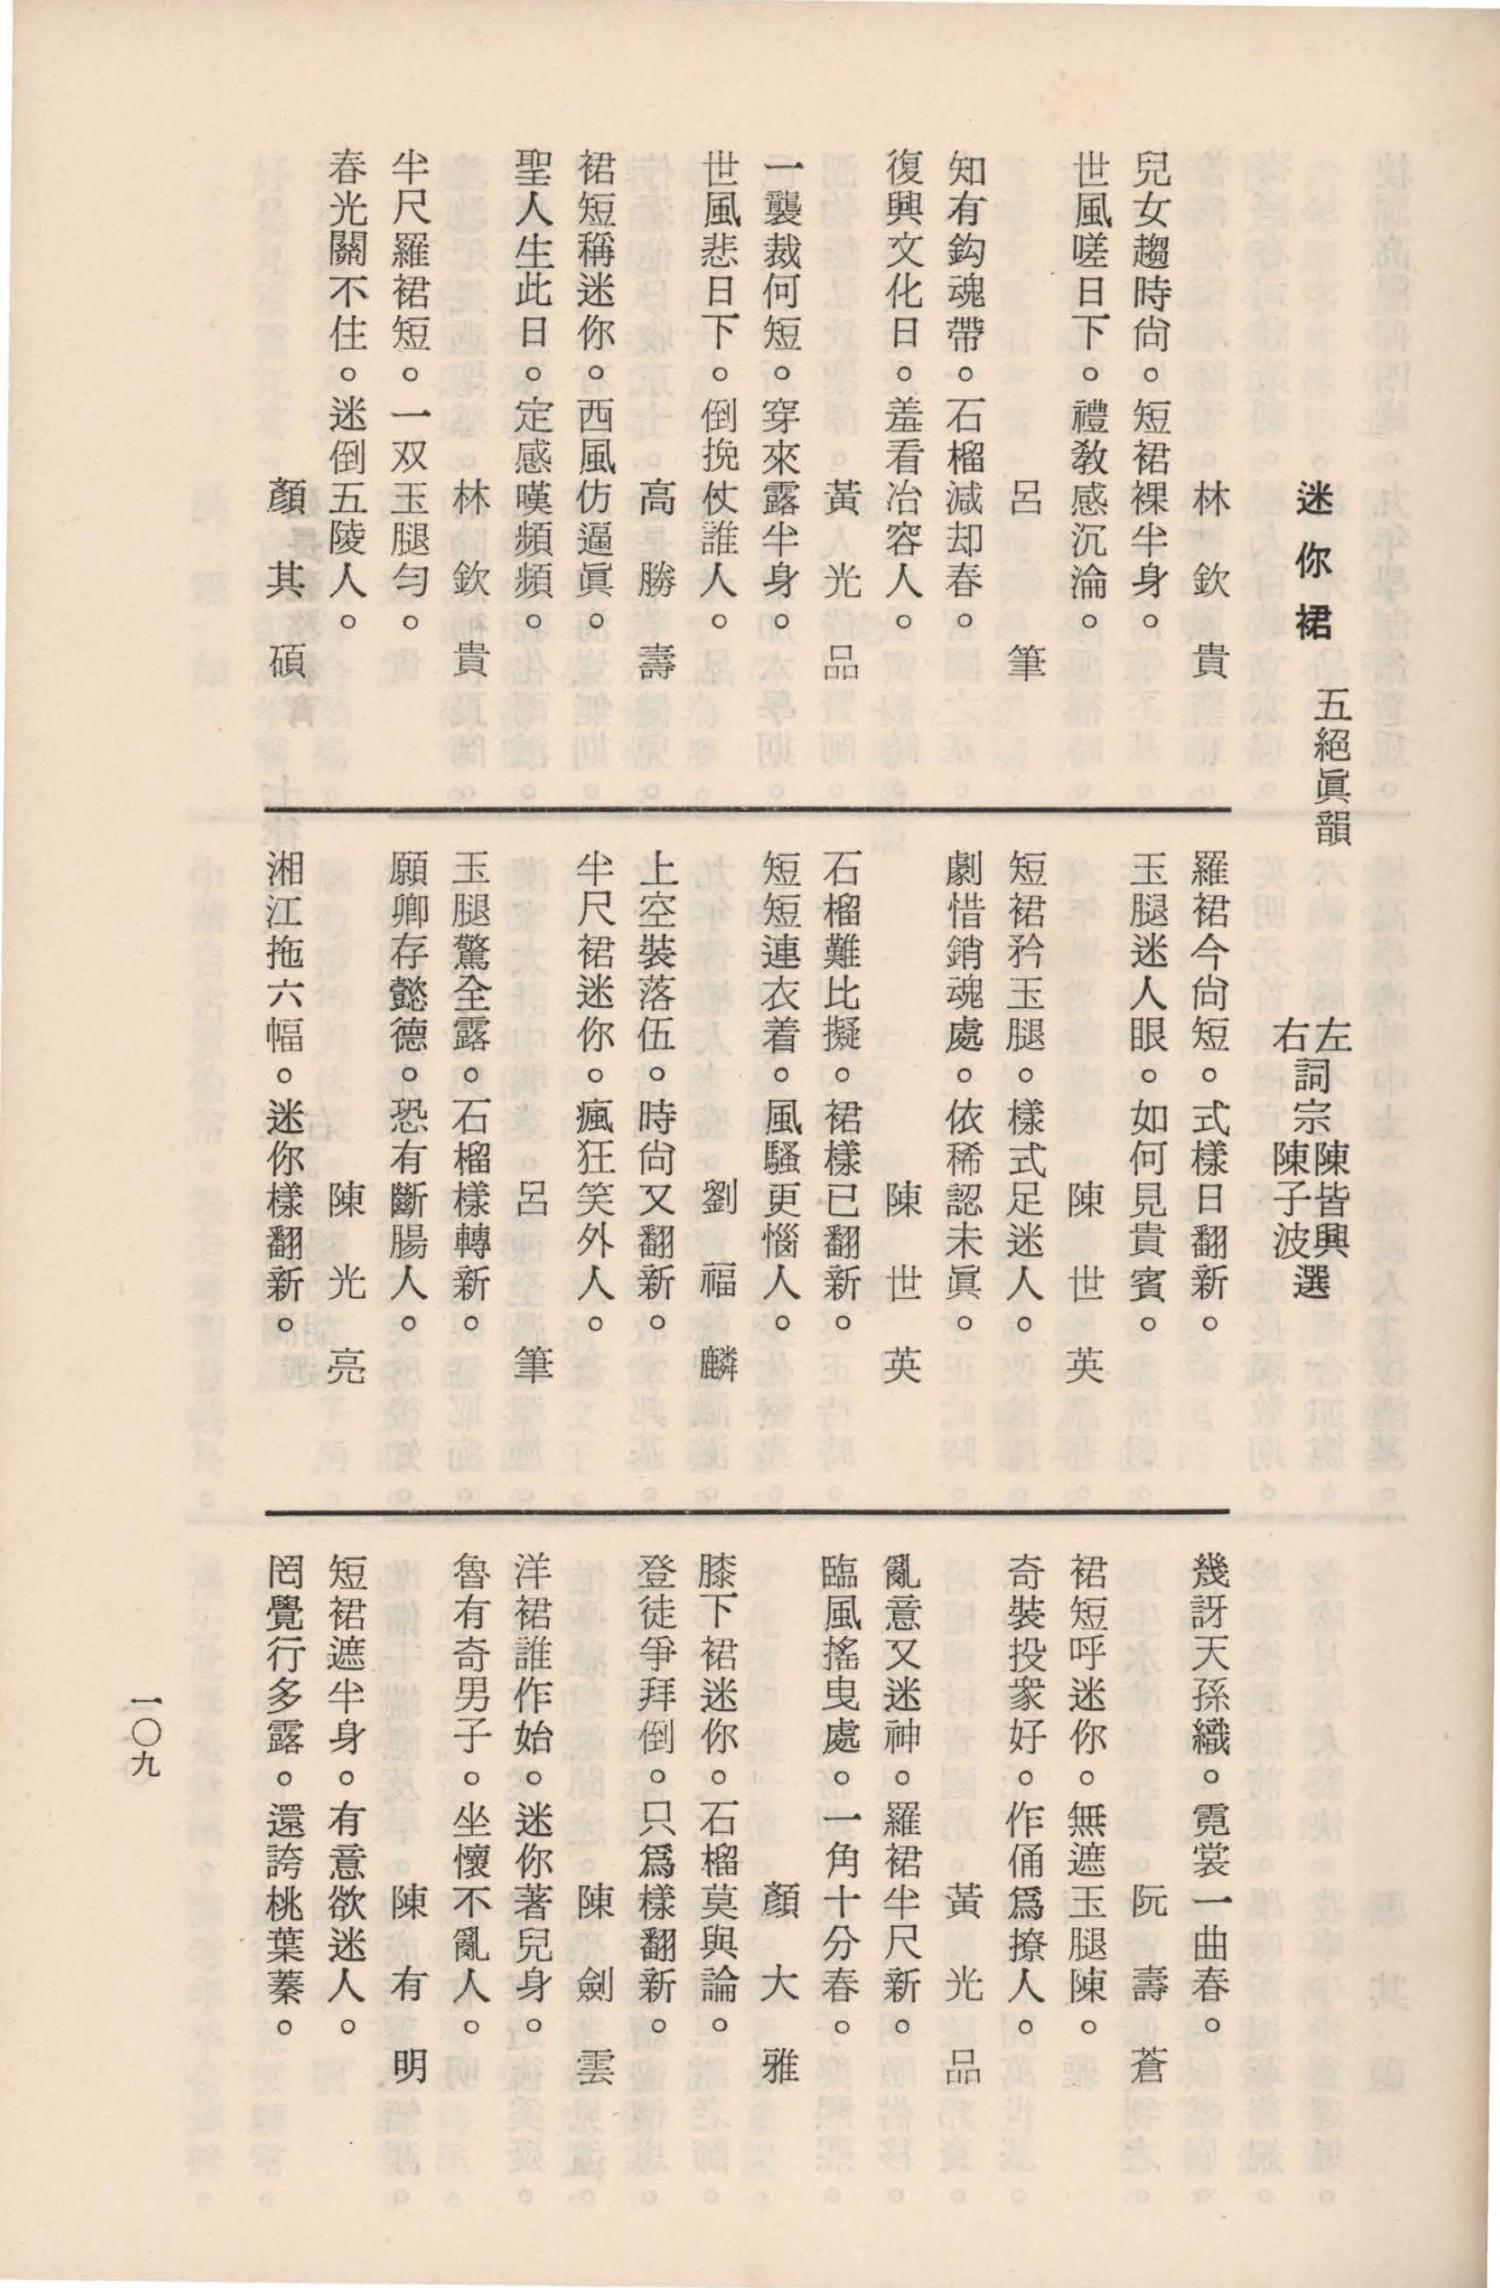 迷你裙　五絕眞韻
左詞宗陳皆興選
右詞宗陳子波選
林欽貴
兒女趨時尙。短裙裸半身。
世風嗟日下。禮敎感沉淪。
呂筆
知有鈎魂帶。石榴減却春。
復興文化日。羞看冶容人。
黃光品
一襲裁何短。穿來露半身。
世風悲日下。倒挽仗誰人。
高勝壽
裙短稱迷你。西風仿逼眞。
聖人生此日。定感嘆頻頻。
林欽貴
半尺羅裙短。一双玉腿勻。
春光關不住。迷倒五陵人。
顏其碩
羅裙今尙短。式樣日翻新。
玉腿迷人眼。如何見貴賓。
陳世英
短裙矜玉腿。樣式足迷人。
劇惜銷魂處。依稀認未眞。
陳世英
石榴難比擬。裙樣已翻新。
短短連衣着。風騷更惱人。
劉福麟
上空裝落伍。時尙又翻新。
半尺裙迷你。瘋狂笑外人。
呂筆
玉腿驚全露。石榴樣轉新。
願卿存懿德。恐有斷腸人。
陳光亮
湘江拖六幅。迷你樣翻新。
幾訝天孫織。霓裳一曲春。
阮壽蒼
裙短呼迷你。無遮玉腿陳。
奇裝投衆好。作俑爲撩人。
黃光品
亂意又迷神。羅裙半尺新。
臨風搖曳處。一角十分春。
顏大雅
膝下裙迷你。石榴莫與論。
登徒爭拜倒。只爲樣翻新。
陳劍雲
洋裙誰作始。迷你著兒身。
魯有奇男子。坐懷不亂人。
陳有明
短裙遮半身。有意欲迷人。
罔覺行多露。還誇桃葉蓁。
一〇九